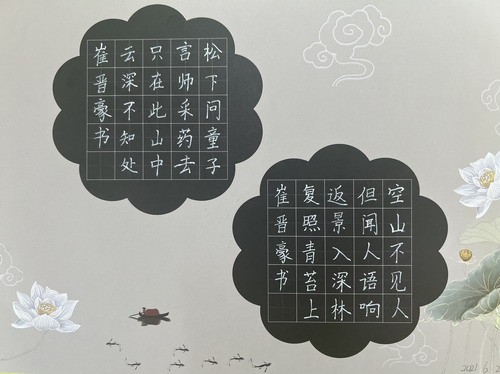 松下问童子
言师采药去
只在此山中
云深不知处
崔晋豪书
空山不见人
但闻人语响
返景入深林
复照青苔上
崔晋豪书